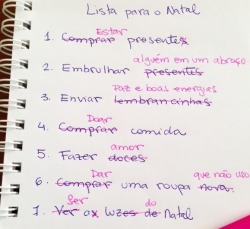 Lista para o Natal
Estar
1. Comprar presentes
alguém em um abraço
2. Embrulhar presentes
Paz e boas energias
3. Enviar lembrancinhas
Doar
4. Comprar comida
amor
5. Fazer doces
Dar que não uso
6. Comprar uma roupa nova.
Ser do
7. Ver as luzes de Natal